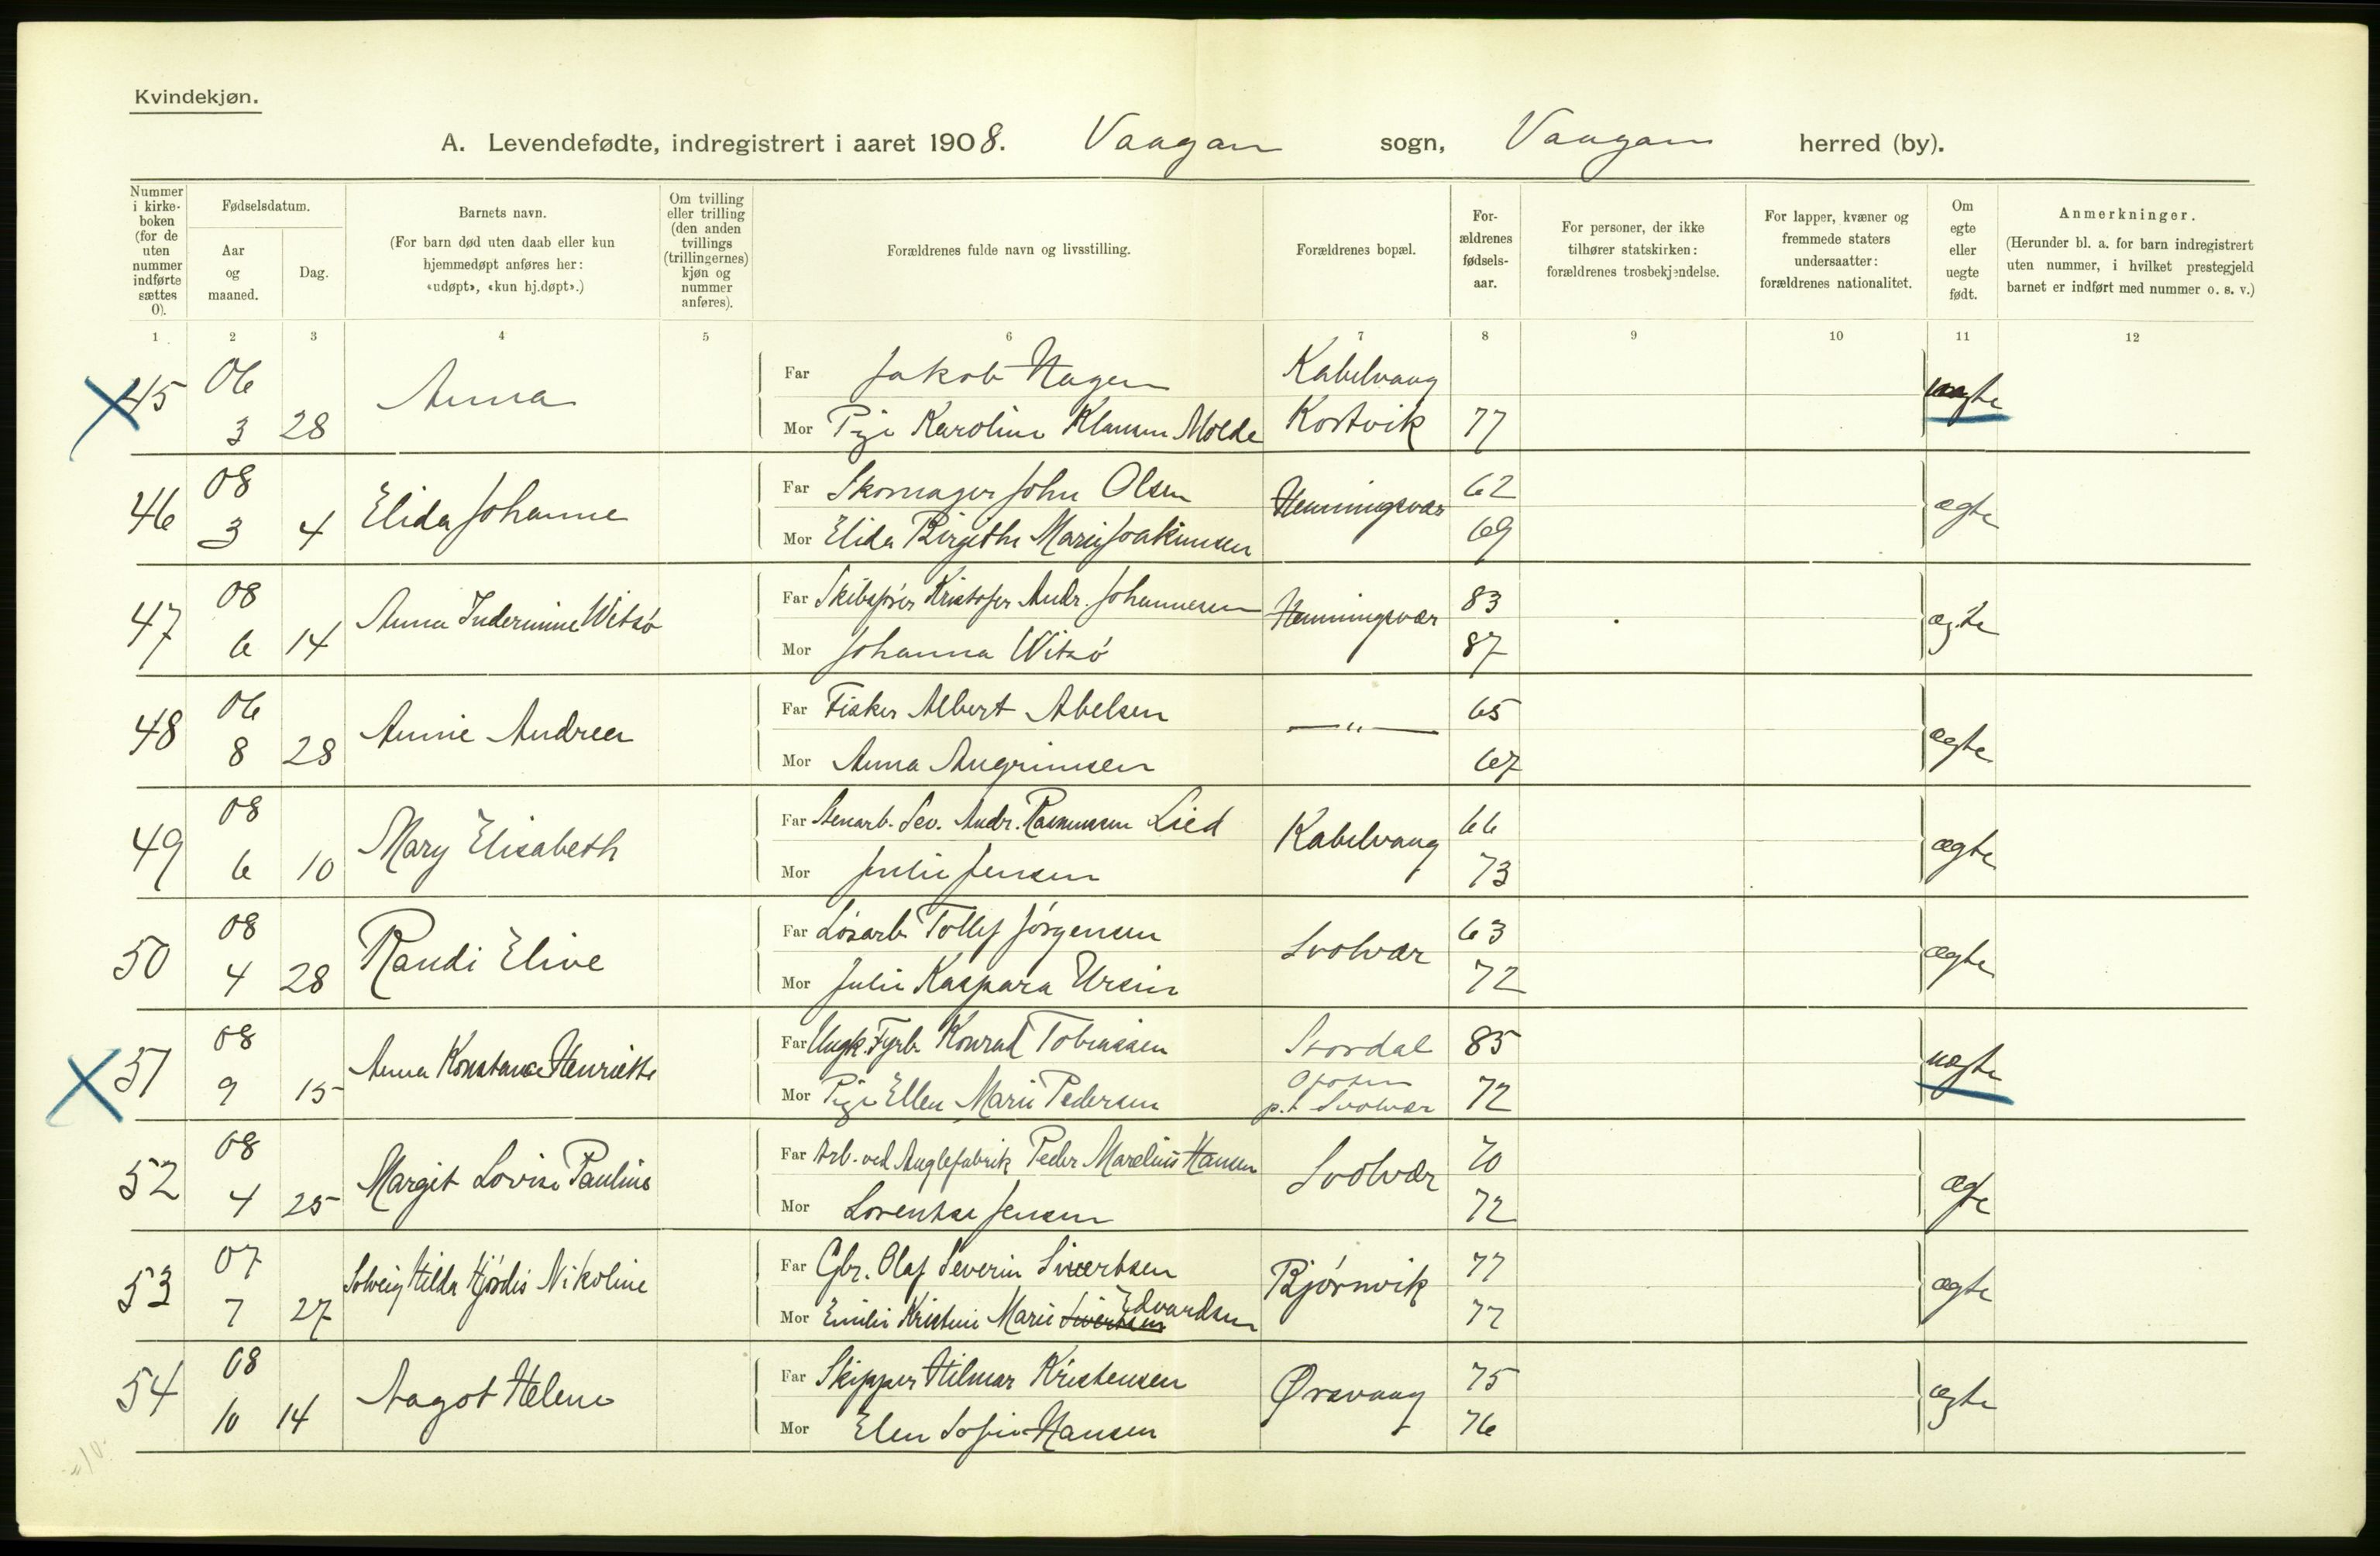 Kvindekjøn.
A. Levendefødte, indregistrert i aaret 1908. Vaagan sogn, Vaagan herred (by).
Nummer i kirkeboken (for de uten nummer indførte sættes 0).
Fødselsdatum.
Aar og maaned.
Dag.
Barnets navn.
(For barn død uten daab eller kun hjemmedøpt anføres her: «udøpt», «kun hj.døpt».)
Om tvilling eller trilling (den anden tvillings (trillingernes) kjøn og nummer anføres).
Forældrenes fulde navn og livsstilling.
Forældrenes bopæl.
Forældrenes fødselsaar.
For personer, der ikke tilhører statskirken: forældrenes trosbekjendelse.
For lapper, kvæner og fremmede staters undersaatter: forældrenes nationalitet.
Om egte eller uegte født.
Anmerkninger.
(Herunder bl. a. for barn indregistrert uten nummer, i hvilket prestegjeld barnet er indført med nummer o. s. v.)
1 2 3 4 5 6 7 8 9 10 11 12
45 06 3 28 Anna
Far Jakob Hagen Kabelvaag
Mor Pige Karoline Klausen Molde 77 uægte
46 08 3 4 Elida Johanne
Far Skomager John Olsen Henningsvær 62
Mor Elida Birgithe Marie Joakimsen 69 ægte
47 08 6 14 Anna Inderminne Witsø
Far Skibsfører Kristofer Andr. Johannesen Henningsvær 83
Mor Johanna Witsø 87 ægte
48 06 8 28 Annie Andrea
Far Fisker Albert Abelsen —"— 65
Mor Anna Angrimsen 67 ægte
49 08 6 10 Mary Elisabeth
Far Stenarb. Sev. Andr. Rasmussen Lied Kabelvaag 66
Mor Julie Jensen 73 ægte
50 08 4 28 Randi Elive
Far Løsarb. Tollef Jørgensen Svolvær 63
Mor Julie Kaspara Ursin 72 ægte
51 08 9 15 Anna Konstance Henriette
Far Ungk. Fyrb. Konrad Tobiassen Stordal 85
Mor Pige Ellen Marie Pedersen p.t. Svolvær 72 uægte
52 08 4 25 Margit Lovise Pauline
Far Arb. ved Anglefabrik Peder Marelius Hansen Svolvær 70
Mor Lorentse Jensen 72 ægte
53 07 7 27 Solveig Hilda Hjørdis Nikoline
Far Gbr. Olaf Severin Sivertsen Bjørnvik 77
Mor Emilie Kristine Marie Sivertsen Edvardsen 77 ægte
54 08 10 14 Aagot Helene
Far Skipper Hilmar Kristensen Ørsvaag 75
Mor Elen Sofie Hansen 76 ægte